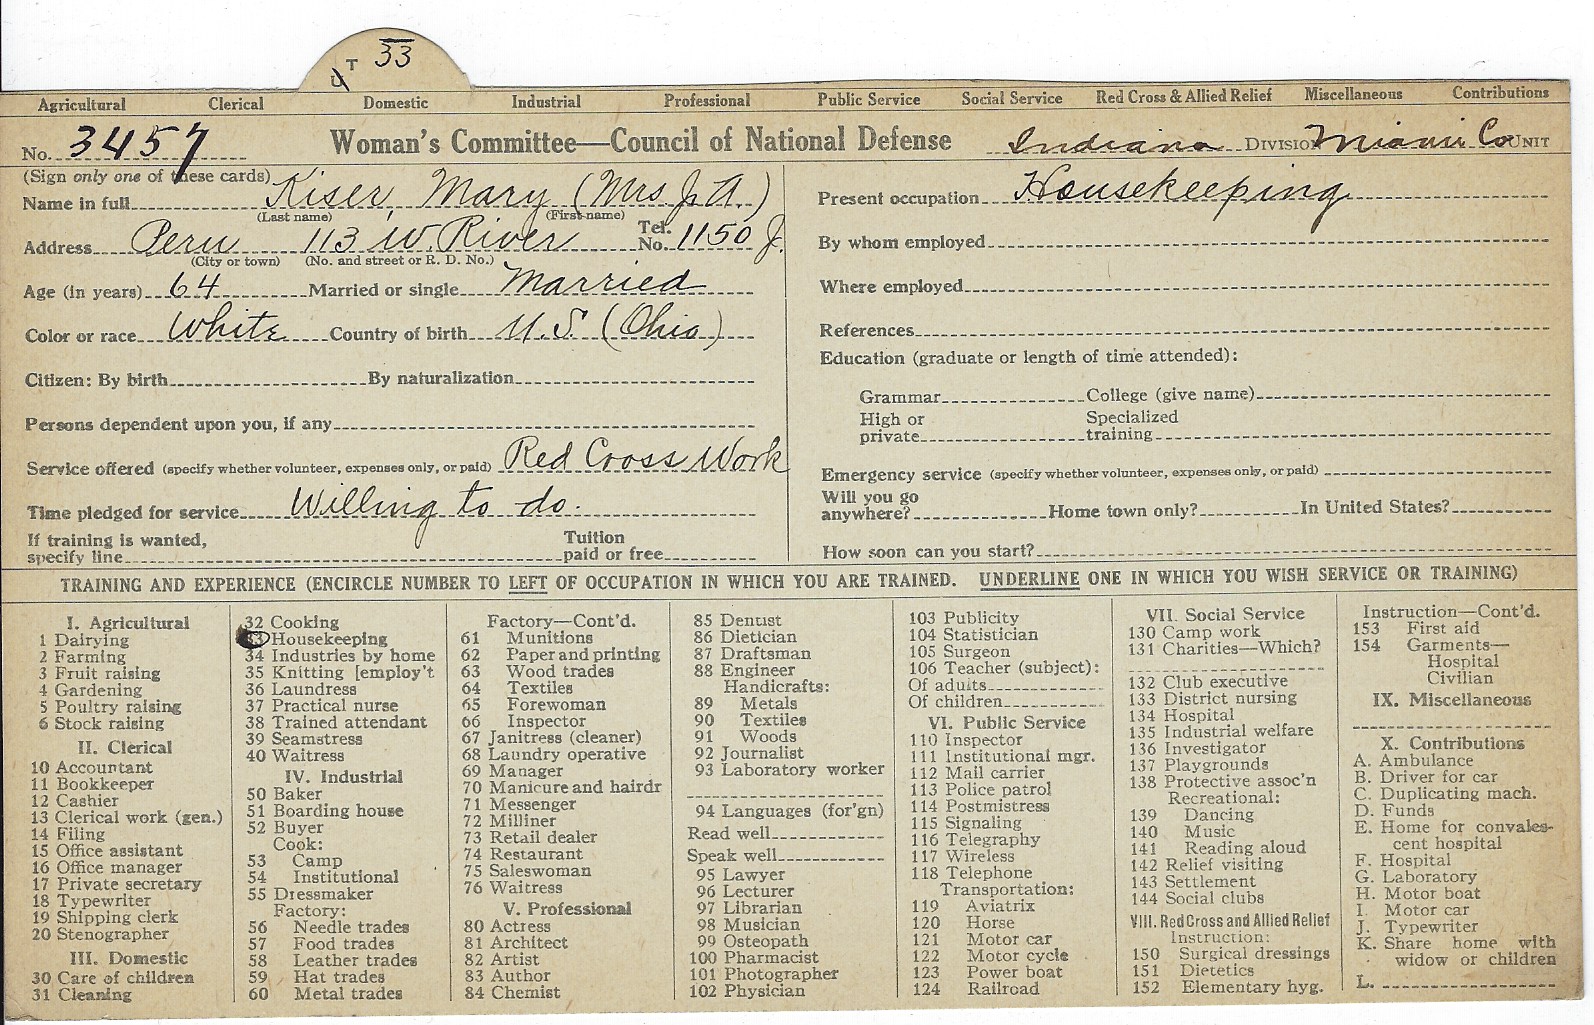 T 33
U
Agricultural Clerical Domestic Industrial Professional Public Service Social Service Red Cross & Allied Relief Miscellaneous Contributions
No. 3457 Woman's Committee—Council of National Defense Indiana DIVISION Miami Co UNIT
(Sign only one of these cards)
Name in full Kiser, Mary (Mrs. J. A.)
(Last name) (First name)
Address Peru 113 W. River Tel. No. 1150 J.
(City or town) (No. and street or R. D. No.)
Age (in years) 64 Married or single Married
Color or race White Country of birth U.S. (Ohio)
Citizen: By birth By naturalization
Persons dependent upon you, if any
Service offered (specify whether volunteer, expenses only, or paid) Red Cross Work
Time pledged for service Willing to do.
If training is wanted, specify line Tuition paid or free
Present occupation Housekeeping
By whom employed
Where employed
References
Education (graduate or length of time attended):
Grammar College (give name)
High or private Specialized training
Emergency service (specify whether volunteer, expenses only, or paid)
Will you go anywhere? Home town only? In United States?
How soon can you start?
TRAINING AND EXPERIENCE (ENCIRCLE NUMBER TO LEFT OF OCCUPATION IN WHICH YOU ARE TRAINED. UNDERLINE ONE IN WHICH YOU WISH SERVICE OR TRAINING)
I. Agricultural
1 Dairying
2 Farming
3 Fruit raising
4 Gardening
5 Poultry raising
6 Stock raising
II. Clerical
10 Accountant
11 Bookkeeper
12 Cashier
13 Clerical work (gen.)
14 Filing
15 Office assistant
16 Office manager
17 Private secretary
18 Typewriter
19 Shipping clerk
20 Stenographer
III. Domestic
30 Care of children
31 Cleaning
32 Cooking
33 Housekeeping
34 Industries by home
35 Knitting [employ't
36 Laundress
37 Practical nurse
38 Trained attendant
39 Seamstress
40 Waitress
IV. Industrial
50 Baker
51 Boarding house
52 Buyer
Cook:
53 Camp
54 Institutional
55 Dressmaker
Factory:
56 Needle trades
57 Food trades
58 Leather trades
59 Hat trades
60 Metal trades
Factory—Cont'd.
61 Munitions
62 Paper and printing
63 Wood trades
64 Textiles
65 Forewoman
66 Inspector
67 Janitress (cleaner)
68 Laundry operative
69 Manager
70 Manicure and hairdr
71 Messenger
72 Milliner
73 Retail dealer
74 Restaurant
75 Saleswoman
76 Waitress
V. Professional
80 Actress
81 Architect
82 Artist
83 Author
84 Chemist
85 Dentist
86 Dietician
87 Draftsman
88 Engineer
Handicrafts:
89 Metals
90 Textiles
91 Woods
92 Journalist
93 Laboratory worker
94 Languages (for'gn)
Read well
Speak well
95 Lawyer
96 Lecturer
97 Librarian
98 Musician
99 Osteopath
100 Pharmacist
101 Photographer
102 Physician
103 Publicity
104 Statistician
105 Surgeon
106 Teacher (subject):
Of adults
Of children
VI. Public Service
110 Inspector
111 Institutional mgr.
112 Mail carrier
113 Police patrol
114 Postmistress
115 Signaling
116 Telegraphy
117 Wireless
118 Telephone
Transportation:
119 Aviatrix
120 Horse
121 Motor car
122 Motor cycle
123 Power boat
124 Railroad
VII. Social Service
130 Camp work
131 Charities—Which?
132 Club executive
133 District nursing
134 Hospital
135 Industrial welfare
136 Investigator
137 Playgrounds
138 Protective assoc'n
Recreational:
139 Dancing
140 Music
141 Reading aloud
142 Relief visiting
143 Settlement
144 Social clubs
VIII. Red Cross and Allied Relief
Instruction:
150 Surgical dressings
151 Dietetics
152 Elementary hyg.
Instruction—Cont'd.
153 First aid
154 Garments—
Hospital
Civilian
IX. Miscellaneous
X. Contributions
A. Ambulance
B. Driver for car
C. Duplicating mach.
D. Funds
E. Home for convales-
cent hospital
F. Hospital
G. Laboratory
H. Motor boat
I. Motor car
J. Typewriter
K. Share home with
widow or children
L.